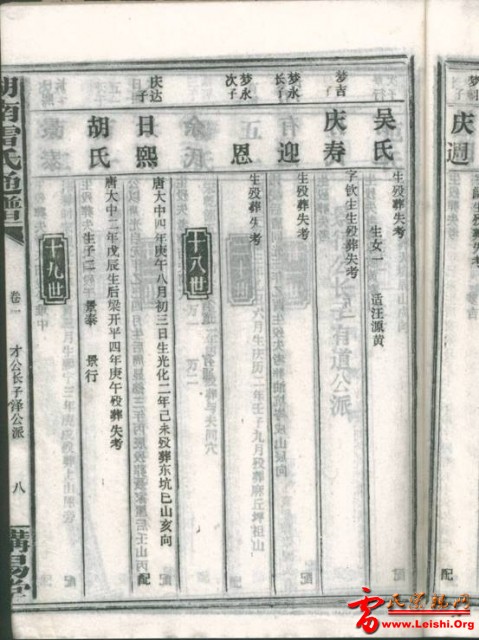 庆週
吴氏 生殁葬失考 生女一 适汪源黄
梦吉子
庆寿 字钦生生殁葬失考
梦永长子
有迎 生殁葬失考
梦永次子
五恩 生殁葬失考
十八世
庆达子
日熙 唐大中四年庚午八月初三日生光化二年己未殁葬东坑巳山亥向 配
胡氏 唐大中二年戊辰生后梁开平四年庚午殁葬失考
生子二 景泰 景行
十九世
湖南雷氏通谱
卷一
才公长子泽公派
八
雷氏宗亲网
www.Leishi.Org